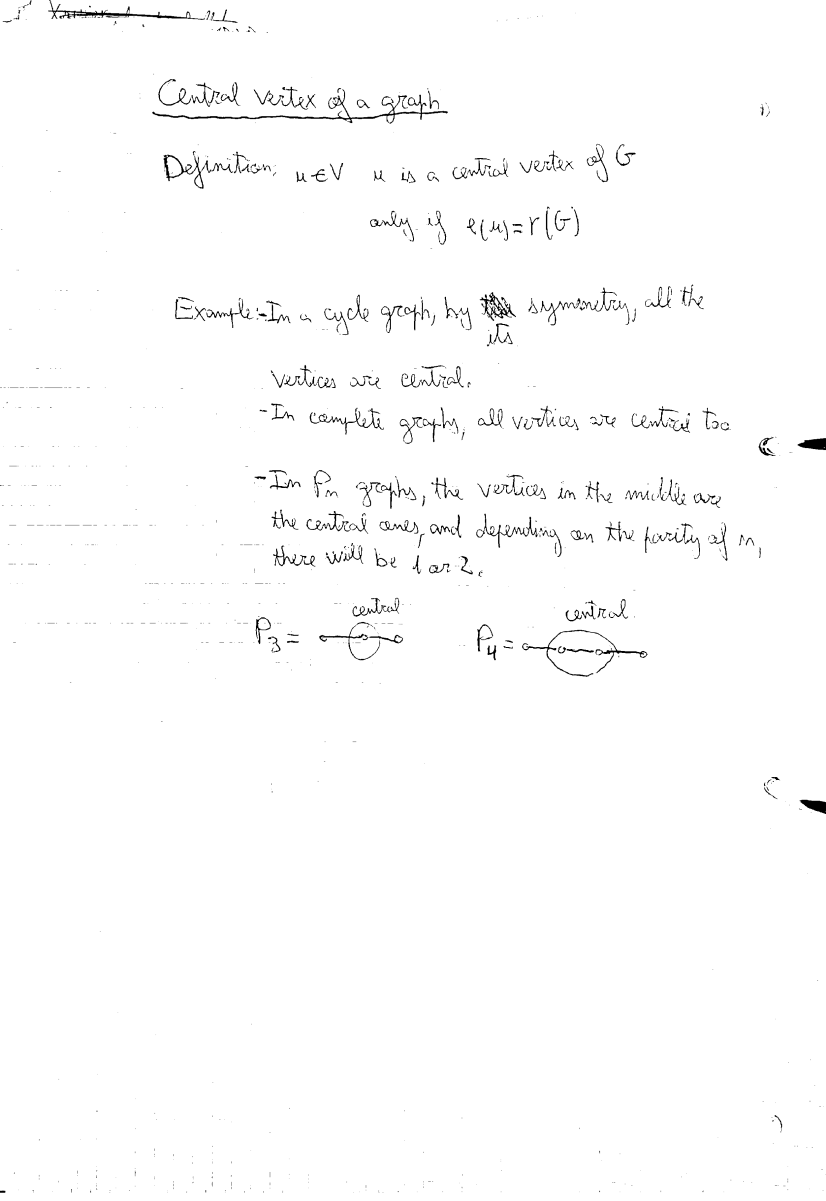 Central vertex of a graph
Definition: u ∈ V u is a central vertex of G
only if e(u) = r(G)
Example:-In a cycle graph, by its symmetry, all the
vertices are central.
-In complete graphs, all vertices are central too
-In Pn graphs, the vertices in the middle are
the central ones, and depending on the parity of n,
there will be 1 or 2.
central central
P3 = P4 =